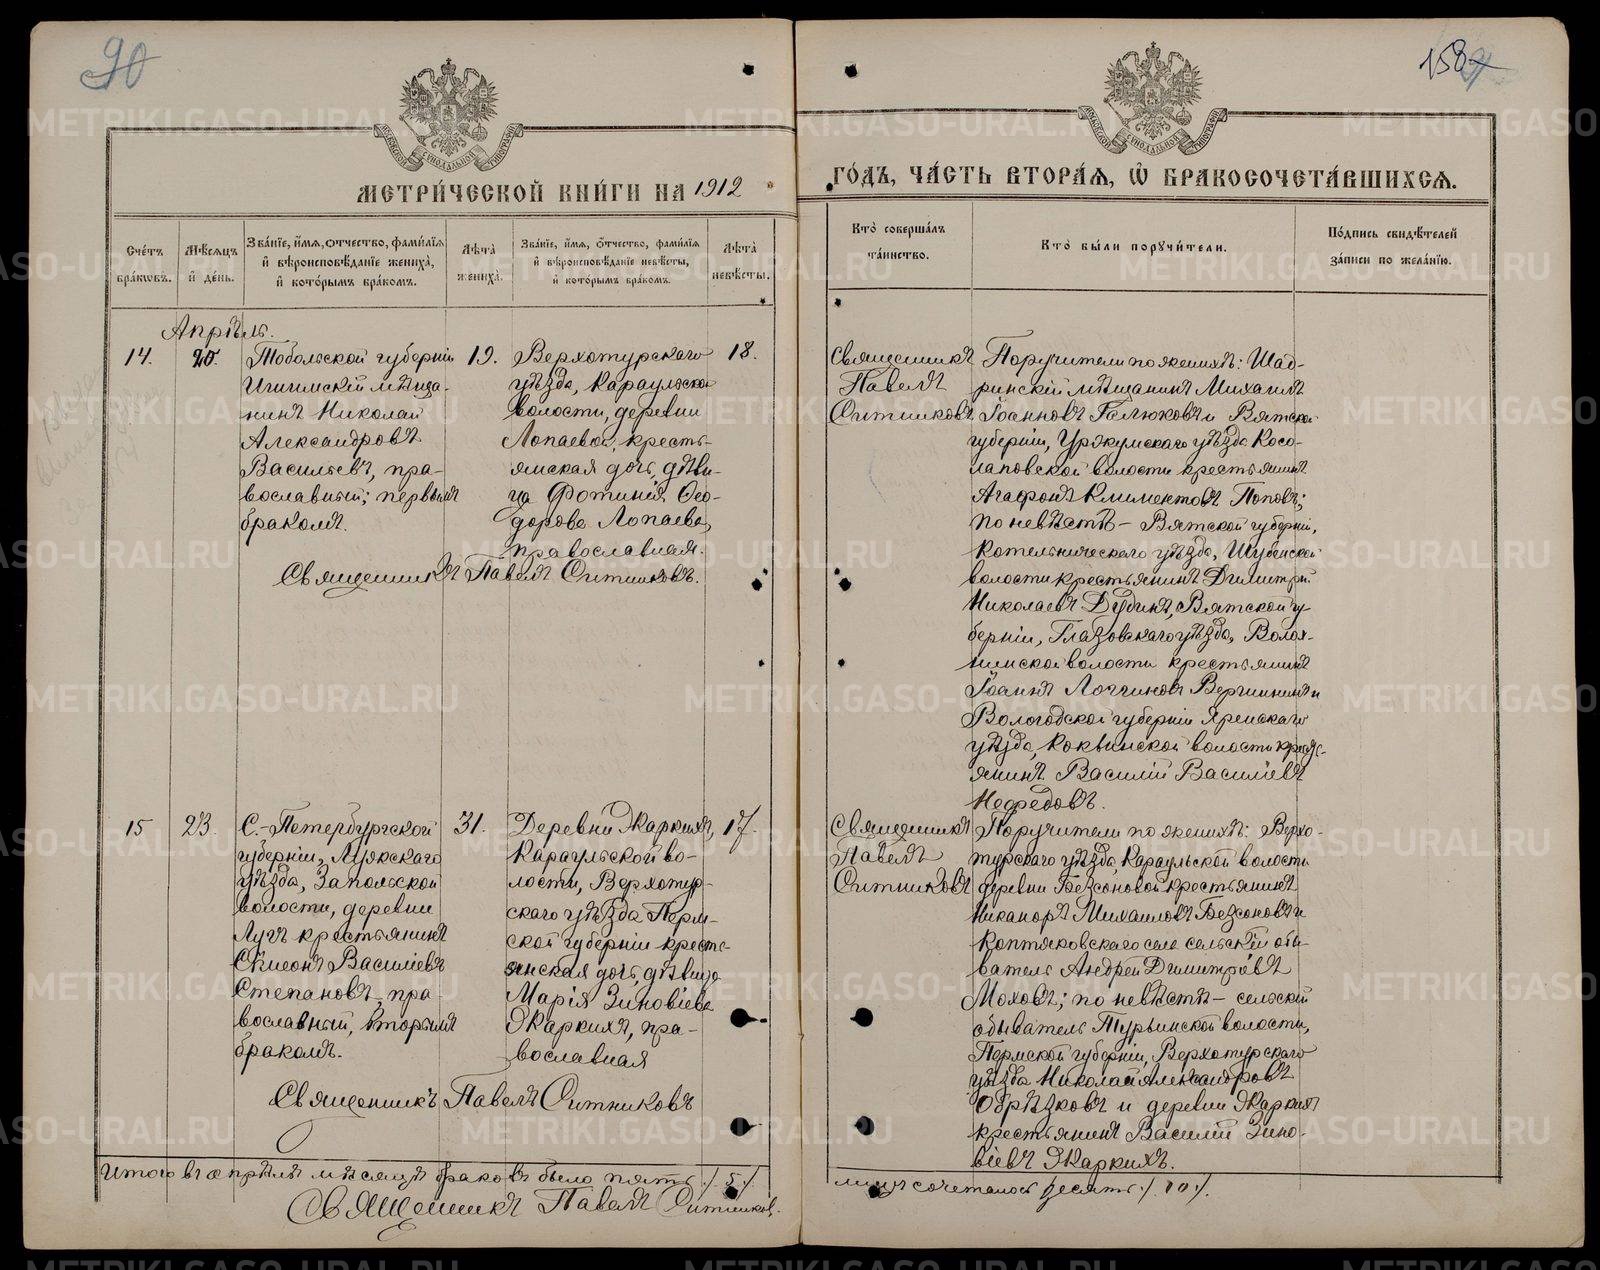 90
158
МЕТРИ́ЧЕСКОЙ КНИ́ГИ НА 1912
ГО́ДЪ, ЧА́СТЬ ВТОРА́Я, Ѡ҆ БРАКОСОЧЕТА́ВШИХСЯ.
МОСКОВСКОЙ СѴНОДАЛЬНОЙ ТИПОГРАФІИ
МОСКОВСКОЙ СѴНОДАЛЬНОЙ ТИПОГРАФІИ
Сче́тъ бра́ковъ.
Мѣ́сяцъ и де́нь.
Зва́нїе, и́мя, о́тчество, фами́лїя и вѣроисповѣ́данїе жениха̀, и кото́рымъ бра́комъ.
Лѣ́та жениха̀.
Зва́нїе, и́мя, о́тчество, фами́лїя и вѣроисповѣ́данїе невѣ́сты, и кото́рымъ бра́комъ.
Лѣ́та невѣ́сты.
Кто̀ соверша́лъ та́инство.
Кто̀ бы́ли поручи́тели.
По́дпись свидѣ́телей за́писи по жела́нїю.
Апрѣль.
14.
20.
Тобольской губерніи
Ишимскій мѣща-
нинъ Николай
Александровъ
Васильевъ, пра-
вославный; первымъ
бракомъ.
19.
Верхотурскаго
уѣзда, Караульской
волости, деревни
Лопаевой, кресть-
янская дочь, дѣви-
ца Фотинія Ѳео-
дорова Лопаева,
православная.
18.
Священникъ Павелъ Ситниковъ.
Священникъ
Павелъ
Ситниковъ
Поручители по женихѣ: Шад-
ринскій мѣщанинъ Михаилъ
Іоанновъ Галюковъ и Вятской
губерніи, Уржумскаго уѣзда Косо-
лаповской волости крестьянинъ
Агафонъ Климентовъ Поповъ;
по невѣстѣ – Вятской губерніи,
Котельническаго уѣзда, Шубенской
волости крестьянинъ Димитрій
Николаевъ Дудинъ, Вятской гу-
берніи, Глазовскаго уѣзда,
волости крестьянинъ
Іоаннъ Логгиновъ Вершининъ и
Вологодской губерніи Яренскаго
уѣзда, Коквинской волости кресть-
янинъ Василій Василіевъ
15
23.
С.-Петербургской
губерніи, Лужскаго
уѣзда, Запольской
волости, деревни
Лугъ крестьянинъ
Сѵмеонъ Василіевъ
Степановъ, пра-
вославный, вторымъ
бракомъ.
31.
Деревни Жаркихъ,
Караульской во-
лости, Верхотур-
скаго уѣзда Перм-
ской губерніи кресть-
янская дочь, дѣвица
Марія Зиновіева
Жаркихъ, пра-
вославная
17.
Священникъ Павелъ Ситниковъ
Священникъ
Павелъ
Ситниковъ
Поручители по женихѣ: Верхо-
турскаго уѣзда, Караульской волости
деревни Безсоновой крестьянинъ
Никаноръ Михаиловъ Безсоновъ и
Коптяковскаго села сельскій обы-
ватель Андрей Димитріевъ
Моховъ; по невѣстѣ – сельскій
обыватель Турьинской волости,
Пермской губерніи, Верхотурскаго
уѣзда Николай Александровъ
Обрѣзковъ и деревни Жаркихъ
крестьянинъ Василій Зино-
віевъ Жаркихъ.
Итого въ апрѣлѣ мѣсяцѣ браковъ было пять /.5./.
лицъ сочеталось десять /.10/.
Священникъ Павелъ Ситниковъ.
METRIKI.GASO-URAL.RU